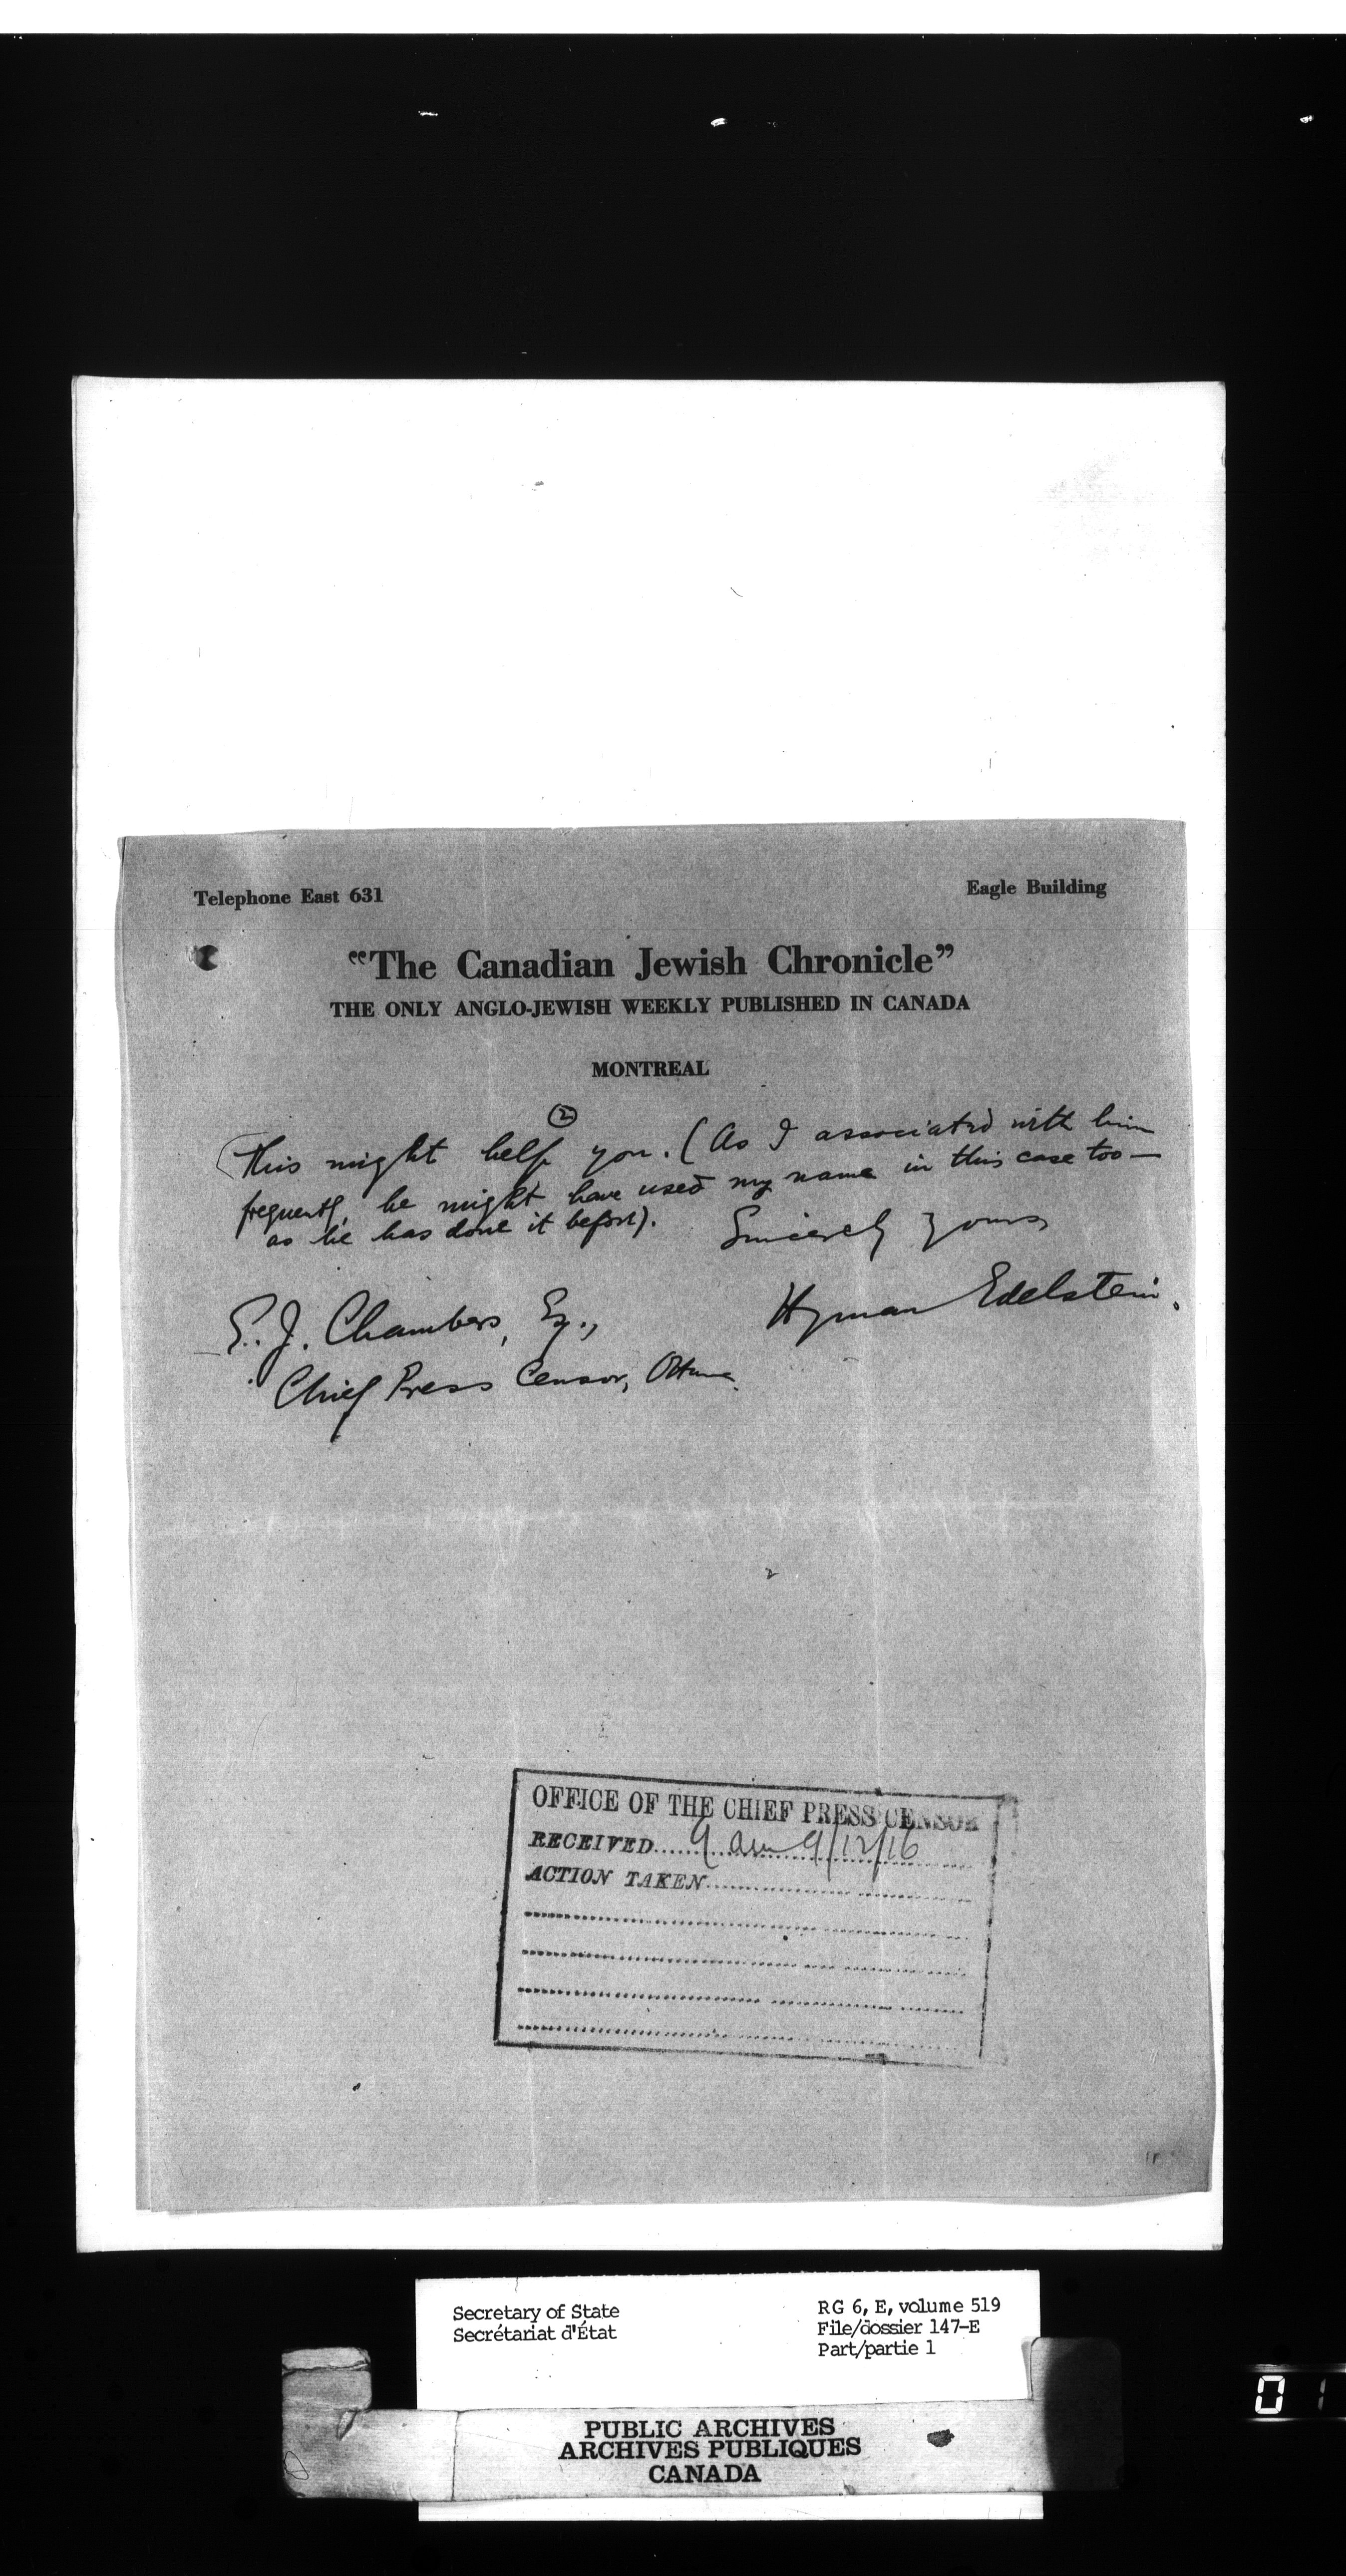 Telephone East 631
Eagle Building
"The Canadian Jewish Chronicle"
THE ONLY ANGLO-JEWISH WEEKLY PUBLISHED IN CANADA
MONTREAL
2
(This might help you. (As I associated with him
frequently, he might have used my name in this case too—
as he has done it before).
Sincerely yours
Hyman Edelstein.
E. J. Chambers, Esq.,
Chief Press Censor, Ottawa.
OFFICE OF THE CHIEF PRESS CENSOR
RECEIVED 9 am 9/12/16
ACTION TAKEN
Secretary of State
Secrétariat d'État
RG 6, E, volume 519
File/dossier 147-E
Part/partie 1
PUBLIC ARCHIVES
ARCHIVES PUBLIQUES
CANADA
01